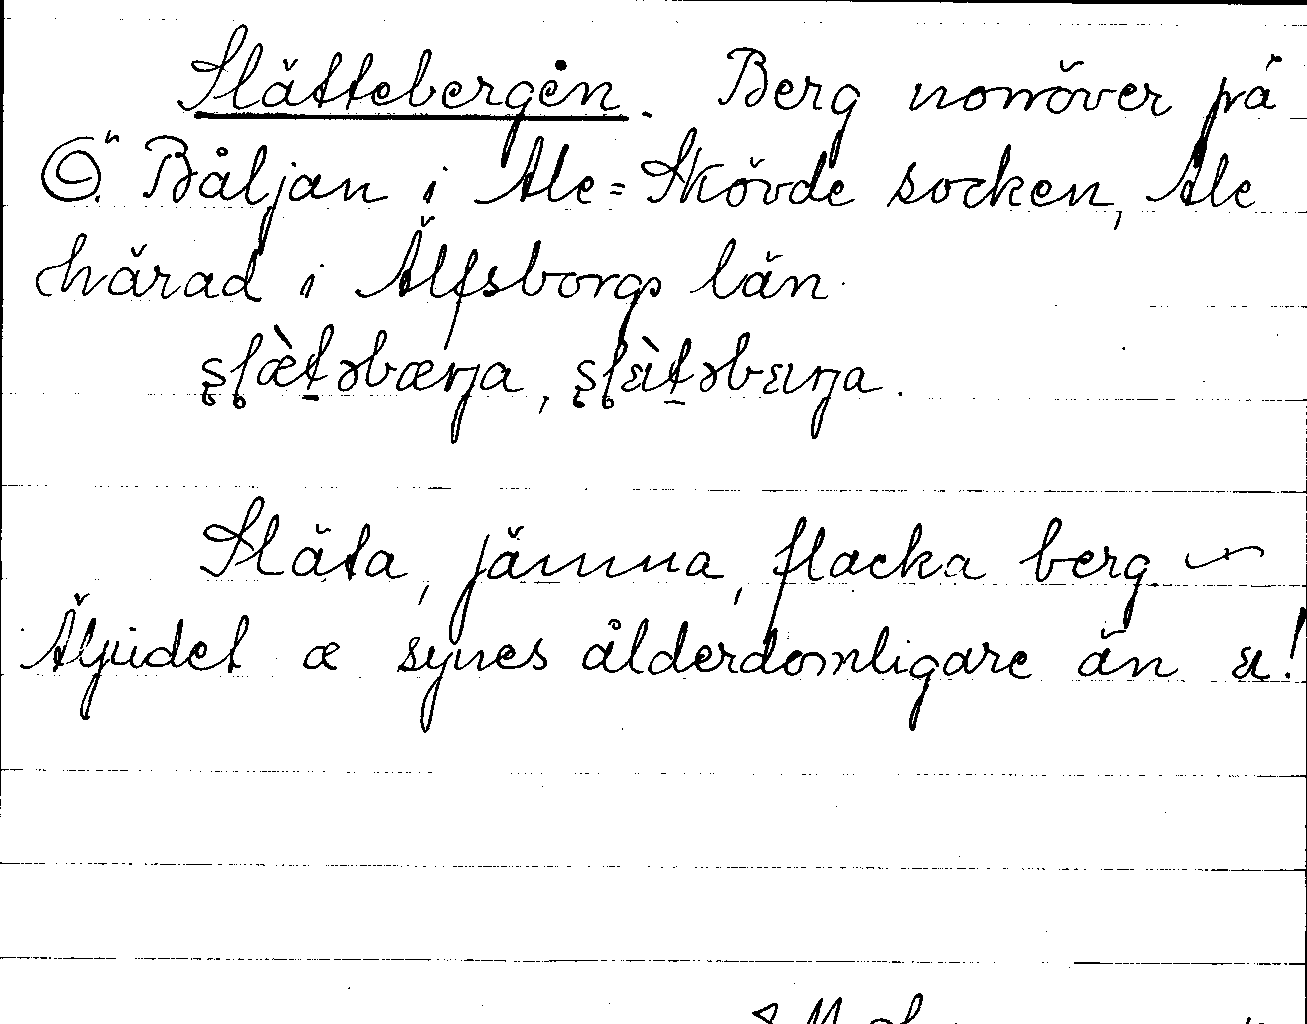 Slättebergen. Berg norröver på
Ö. Båljan i Ale=Skövde socken, Ale
härad i Älfsborgs län.
ʂɭæ̀t̠əbærŋa, ʂɭàt̠əbaŋa.
Släta, jämna, flacka berg.
Äljudet æ synes ålderdomligare än a!